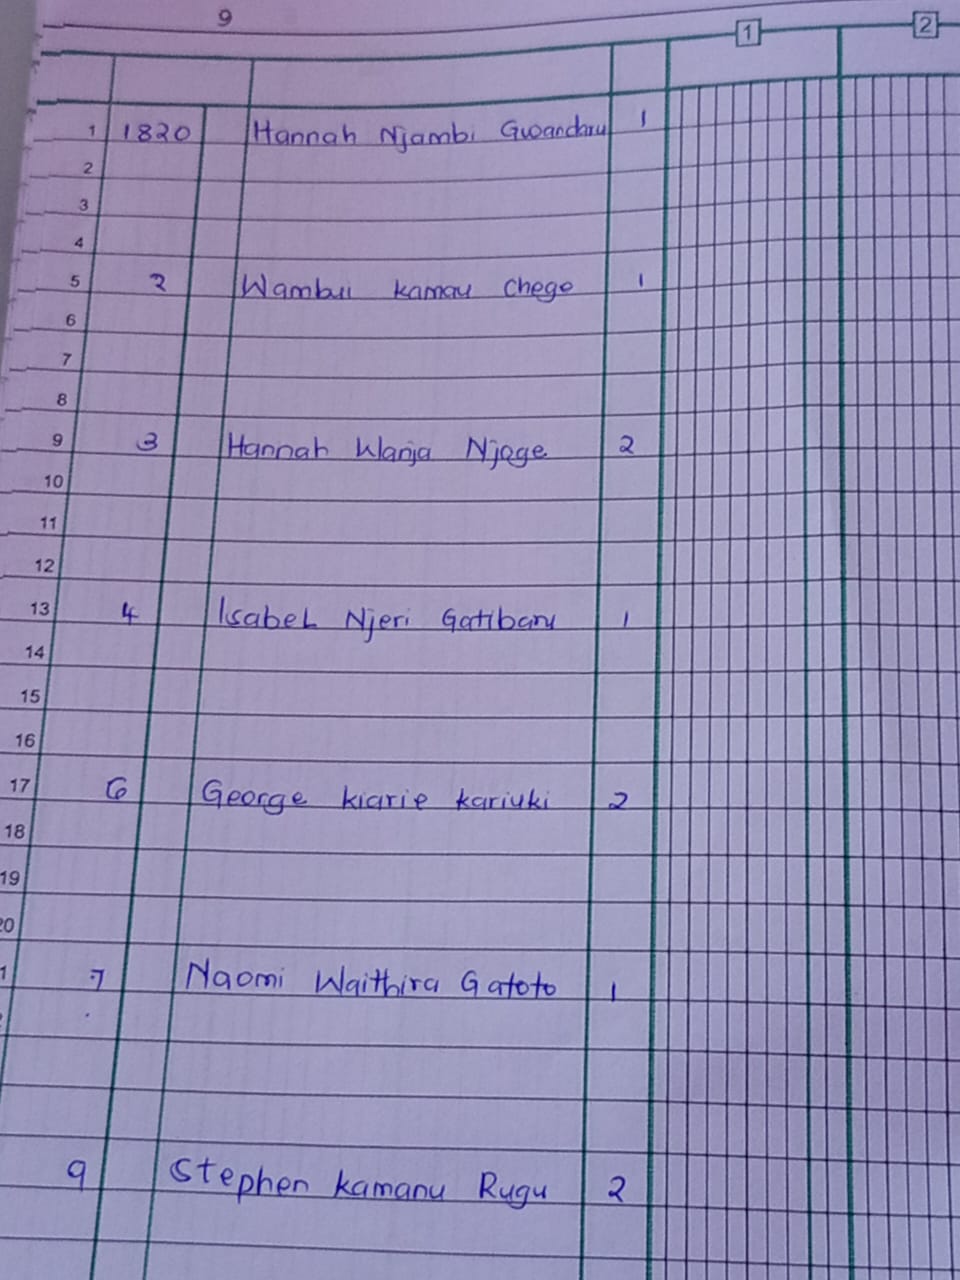 9
1 2
1 1820 Hannah Njambi Gwandaru 1
2
3
4
5 2 Wambui kamau chege 1
6
7
8
9 3 Hannah Wanja Njoge 2
10
11
12
13 4 Isabel Njeri Gatibaru 1
14
15
16
17 6 George kiarie kariuki 2
18
19
20
1 7 Naomi Waithira Gatoto 1
9 Stephen kamanu Rugu 2